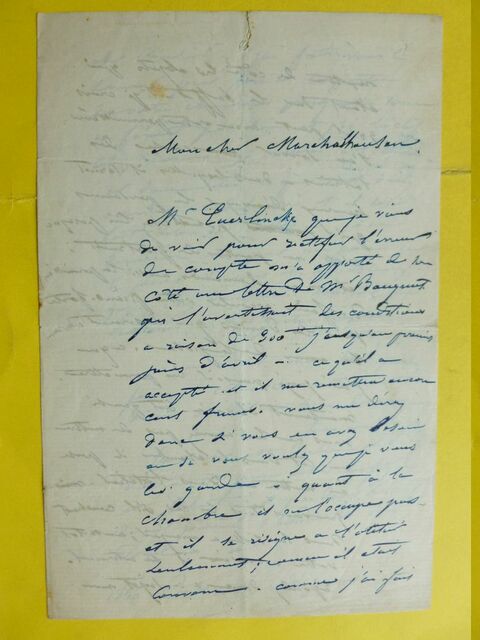 Mon cher Marchalhausen
Mr Euerlincks que je vous
de voir pour rectifier l'erreur
de compte m'a apporté de son
côté une lettre de Mr Bauquent
qui l'avertissait des conditions
a raison de 900 jusqu'au premiers
jours d'avril - ce qu'il a
accepté et il me remettra encore
cent francs. vous me direz
donc si vous en avez besoin
ou si vous voulez que je vous
les garde - quant à la
chambre il ne l'occupe pas
et il se résigne a l'atelier
seulement, comme il était
convenu. comme j'ai fait